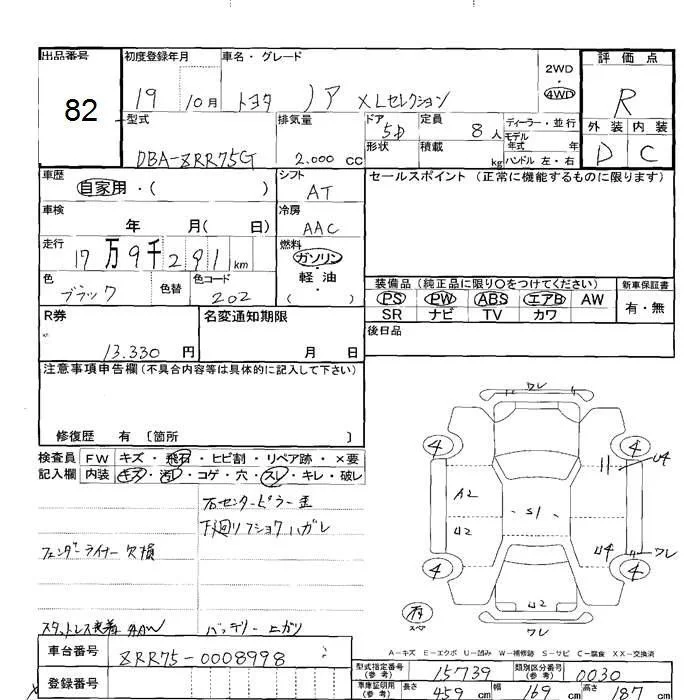 出品番号
82
初度登録年月
19 10月
車名・グレード
トヨタ ノア XLセレクション
2WD
・
4WD
評価点
R
外装 内装
D C
型式
DBA-ZRR75G
排気量
2.000 cc
ドア 5D
形状
定員 8人
積載 kg
ディーラー・並行
モデル
年式 年
ハンドル 左・右
車歴
自家用・( )
シフト
AT
セールスポイント (正常に機能するものに限ります)
車検
年 月( 日)
冷房
AAC
走行
17万9千291km
燃料
ガソリン
・
軽油
( )
色
ブラック
色替
色コード
202
装備品(純正品に限り〇をつけてください)
PS PW ABS エアB AW
SR ナビ TV カワ
新車保証書
有・無
R券
13.330 円
名変通知期限
月 日
後日品
注意事項申告欄(不具合内容等は具体的に記入して下さい)
修復歴 有 〔箇所 〕
検査員
記入欄
FW キズ・飛石・ヒビ割・リペア跡・×要
内装 キズ・汚レ・コゲ・穴・スレ・キレ・破レ
右センターピラー歪
下廻リフショクハガレ
フェンダーライナー欠損
スタットレス装着 AAW
バッテリー上ガリ
ワレ
4 4
U4
A2
U2
S1
U4
ワレ
4 4
U2
ワレ
有
スペア
A-キズ E-エクボ U-凹み W-補修跡 S-サビ C-腐食 XX-交換済
車台番号
ZRR75-0008998
登録番号
型式指定番号
(参考)
15739
類別区分番号
(参考)
0030
車庫証明用
(参考)
長さ 459 cm 幅 169 cm 高さ 187 cm